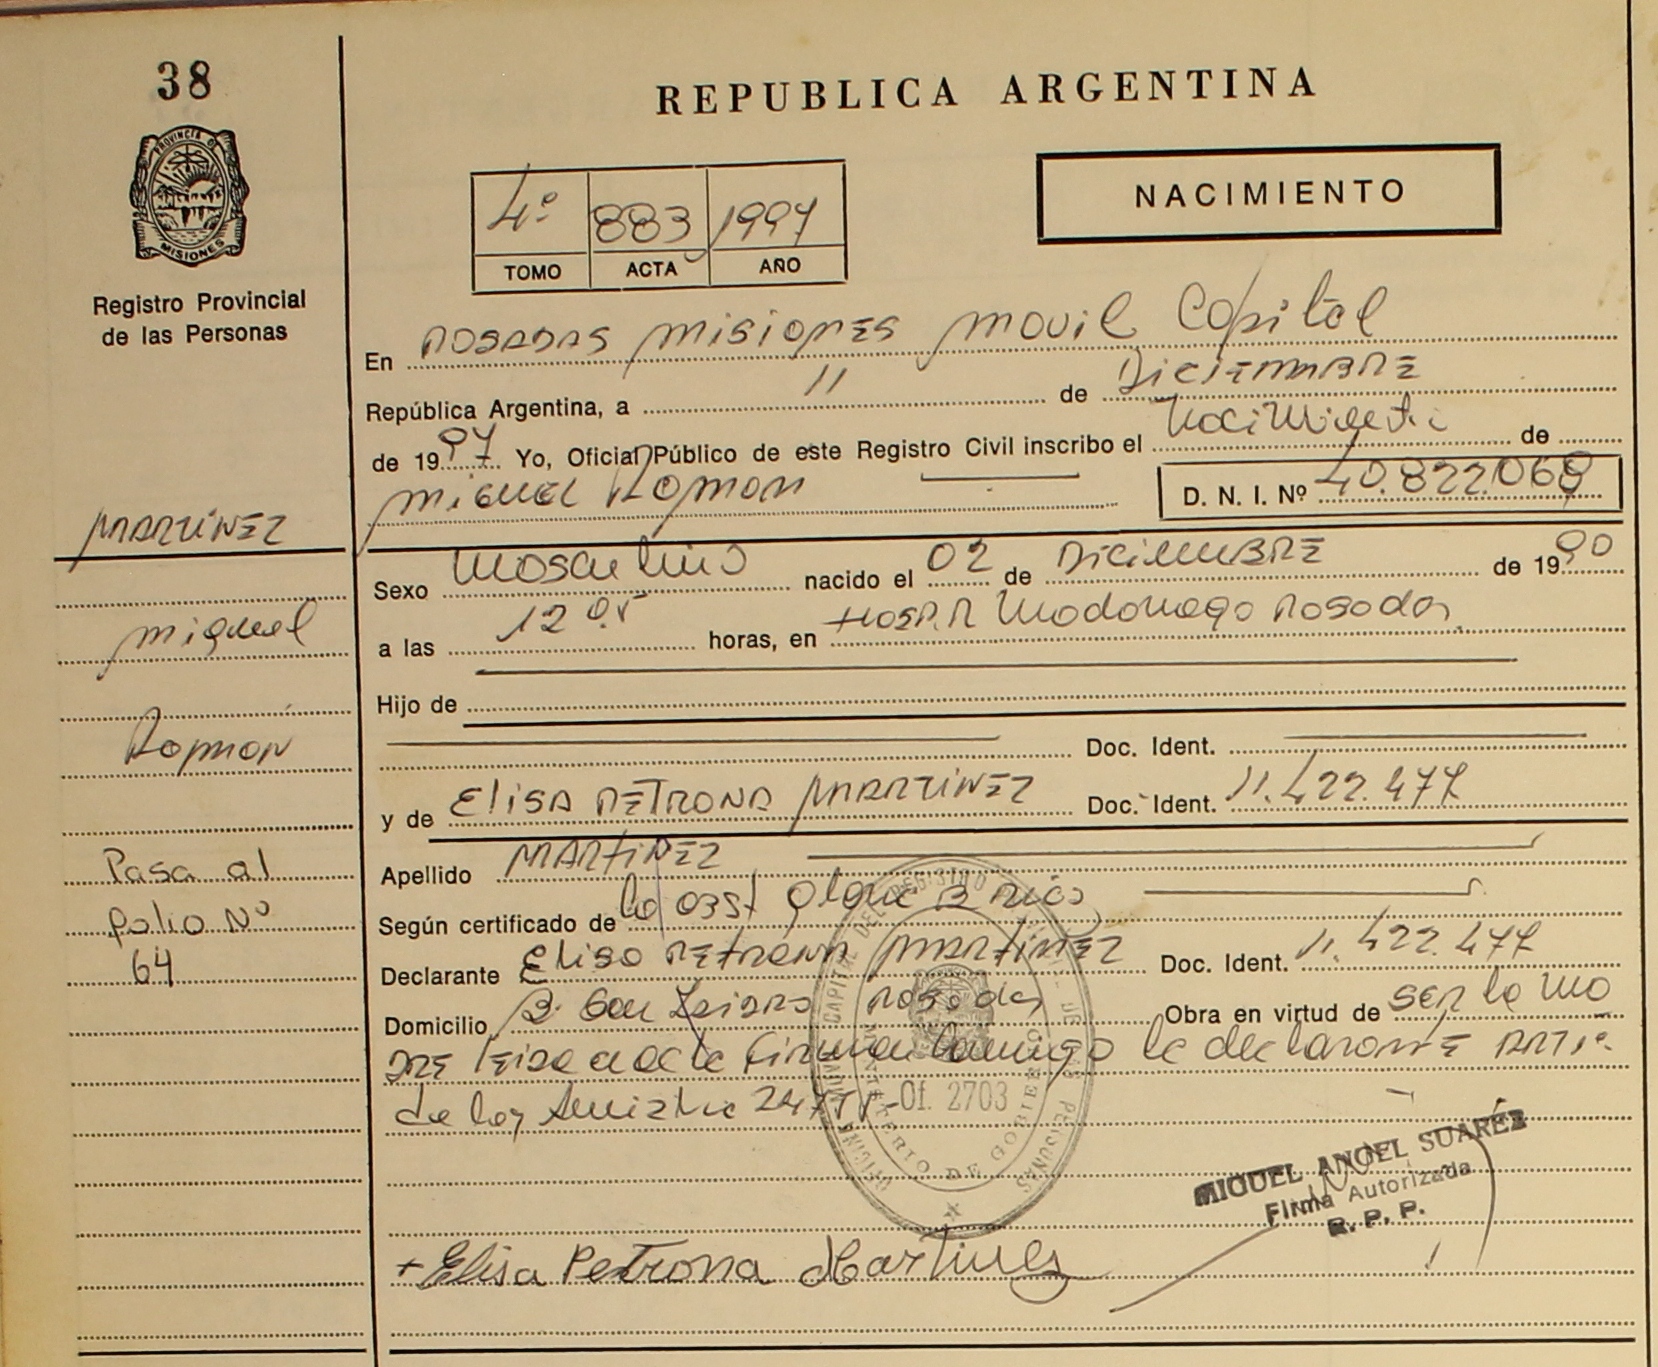 38
REPUBLICA ARGENTINA
PROVINCIA DE
MISIONES
Registro Provincial
de las Personas
4º 883 1997
TOMO ACTA AÑO
NACIMIENTO
En POSADAS MISIONES MOVIL Capital
República Argentina, a 11 de DICIEMBRE
de 1997 Yo, Oficial Público de este Registro Civil inscribo el Nacimiento de
MIGUEL Ramon D. N. I. Nº 40.822.068
MARTINEZ
Sexo Masculino nacido el 02 de DICIEMBRE de 1990
miguel
a las 12 horas, en HOSP. R Madariaga Posadas
Hijo de
Ramon
Doc. Ident.
y de ELISA PETRONA MARTINEZ Doc. Ident. 11.422.477
Apellido MARTINEZ
Pasa al
Según certificado de la obst
folio Nº
Declarante Elisa PETRONA MARTINEZ Doc. Ident. 11.422.477
64
Domicilio B. San Isidro Posadas Obra en virtud de ser la ma
DRE firman conmigo la declarante
de ley
Of. 2703
MINISTERIO DE GOBIERNO
MIGUEL ANGEL SUAREZ
Firma Autorizada
R. P. P.
Elisa Petrona Martinez